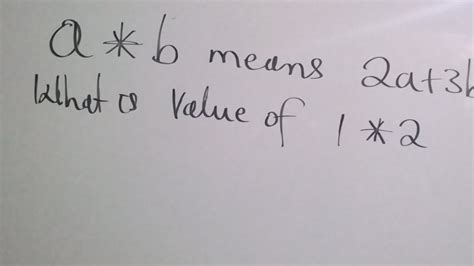 a * b means 2a+3b
What is value of 1 * 2